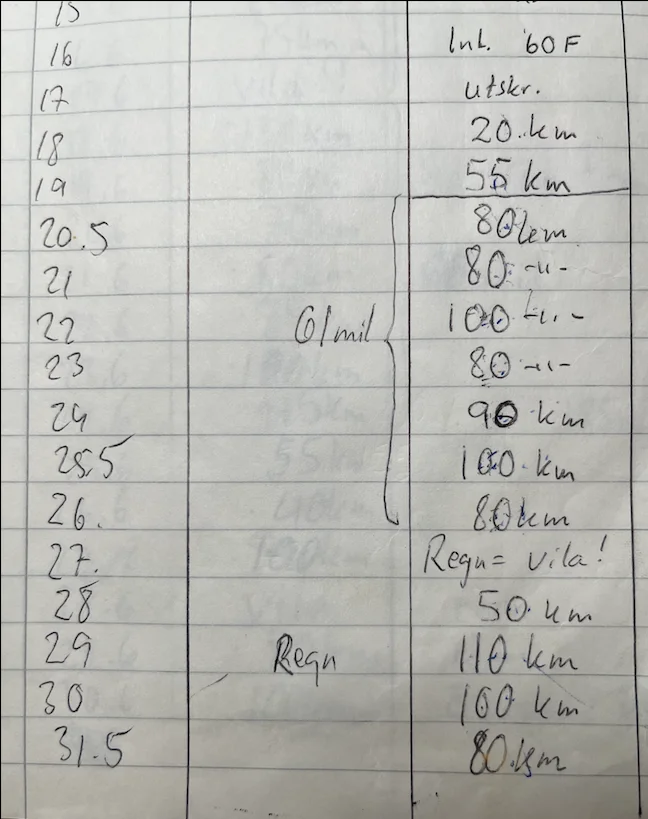 15
16 Inl. 60F
17 utskr.
18 20 km
19 55 km
20.5 80 km
21 80 -"-
22 61 mil 100 -"-
23 80 -"-
24 90 km
25.5 100 km
26. 80 km
27. Regn = vila!
28 50 km
29 Regn 110 km
30 100 km
31.5 80 km